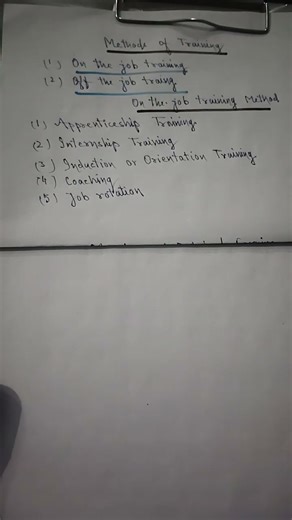 Methods of Training
(1) On the job training
(2) Off the job traing
On the job training Method
(1) Apprenticeship Training.
(2) Internship Training
(3) Induction or Orientation Training.
(4) Coaching
(5) Job rotation